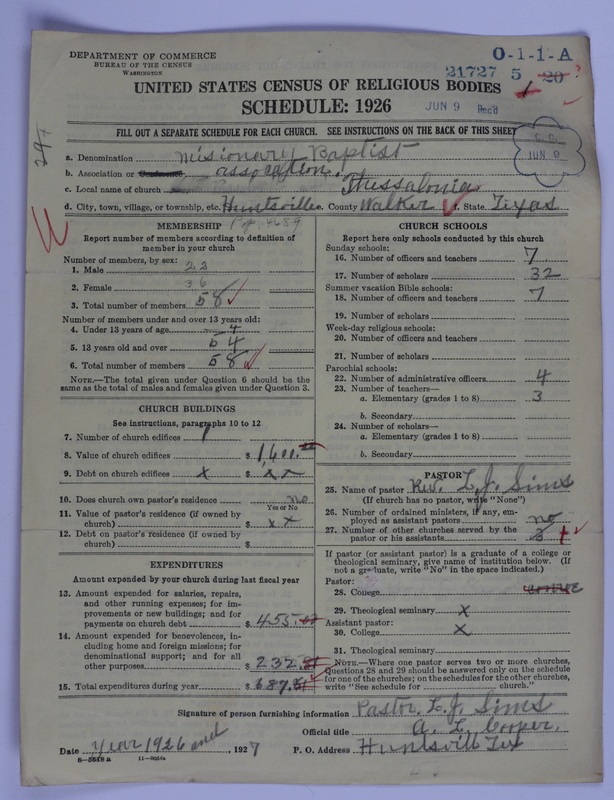 DEPARTMENT OF COMMERCE
BUREAU OF THE CENSUS
WASHINGTON
O-1-1-A
21727 5 20
UNITED STATES CENSUS OF RELIGIOUS BODIES
SCHEDULE: 1926
JUN 9 Rec'd
FILL OUT A SEPARATE SCHEDULE FOR EACH CHURCH. SEE INSTRUCTIONS ON THE BACK OF THIS SHEET
JUN 9
297
a. Denomination Missionary Baptist
b. Association or Conference, assocation.
c. Local name of church Thessalonia
d. City, town, village, or township, etc. Huntsville. County Walker State Texas
MEMBERSHIP
Report number of members according to definition of member in your church
Number of members, by sex:
1. Male 22
2. Female 36
3. Total number of members 58
Number of members under and over 13 years old:
4. Under 13 years of age 4
5. 13 years old and over 54
6. Total number of members 58
NOTE.—The total given under Question 6 should be the same as the total of males and females given under Question 3.
CHURCH BUILDINGS
See instructions, paragraphs 10 to 12
7. Number of church edifices 1
8. Value of church edifices $ 1,600.00
9. Debt on church edifices x $ x x
10. Does church own pastor's residence no
Yes or No
11. Value of pastor's residence (if owned by church) $ x x
12. Debt on pastor's residence (if owned by church) $
EXPENDITURES
Amount expended by your church during last fiscal year
13. Amount expended for salaries, repairs, and other running expenses; for improvements or new buildings; and for payments on church debt $ 455.
14. Amount expended for benevolences, including home and foreign missions; for denominational support; and for all other purposes $ 232.
15. Total expenditures during year $ 687.
CHURCH SCHOOLS
Report here only schools conducted by this church
Sunday schools:
16. Number of officers and teachers 7
17. Number of scholars 32
Summer vacation Bible schools:
18. Number of officers and teachers 7
19. Number of scholars
Week-day religious schools:
20. Number of officers and teachers
21. Number of scholars
Parochial schools:
22. Number of administrative officers 4
23. Number of teachers—
a. Elementary (grades 1 to 8) 3
b. Secondary
24. Number of scholars—
a. Elementary (grades 1 to 8)
b. Secondary
PASTOR
25. Name of pastor Rev. L. J. Sims
(If church has no pastor, write "None")
26. Number of ordained ministers, if any, employed as assistant pastors no
27. Number of other churches served by the pastor or his assistants
If pastor (or assistant pastor) is a graduate of a college or theological seminary, give name of institution below. (If not a graduate, write "No" in the space indicated.)
Pastor:
28. College
29. Theological seminary x
Assistant pastor:
30. College x
31. Theological seminary
NOTE.—Where one pastor serves two or more churches, Questions 28 and 29 should be answered only on the schedule for one of the churches; on the schedules for the other churches, write "See schedule for church."
Signature of person furnishing information Pastor. L. J. Sims
Official title A. L. Cooper,
Date Year 1926 and, 1927 P. O. Address Huntsvill Tex
8—5548 a